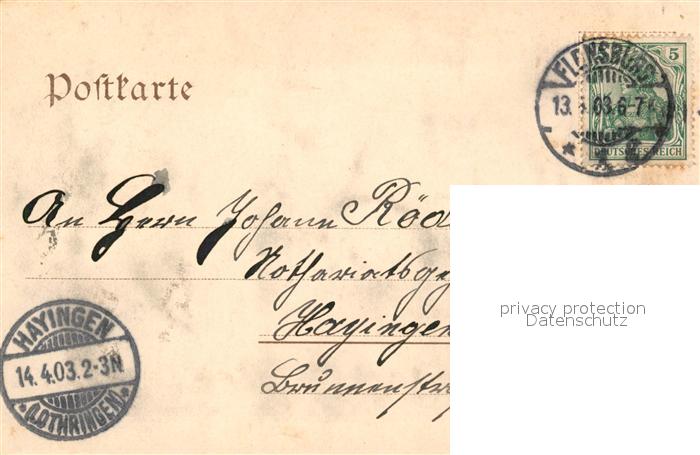 Postkarte
FLENSBURG
13.4.03.6-7
5
DEUTSCHES REICH
An Herrn Johann Röd
Nothariatsge
Hayingen
Brunnenstr
HAYINGEN
14.4.03.2-3N
(LOTHRINGEN)
privacy protection
Datenschutz